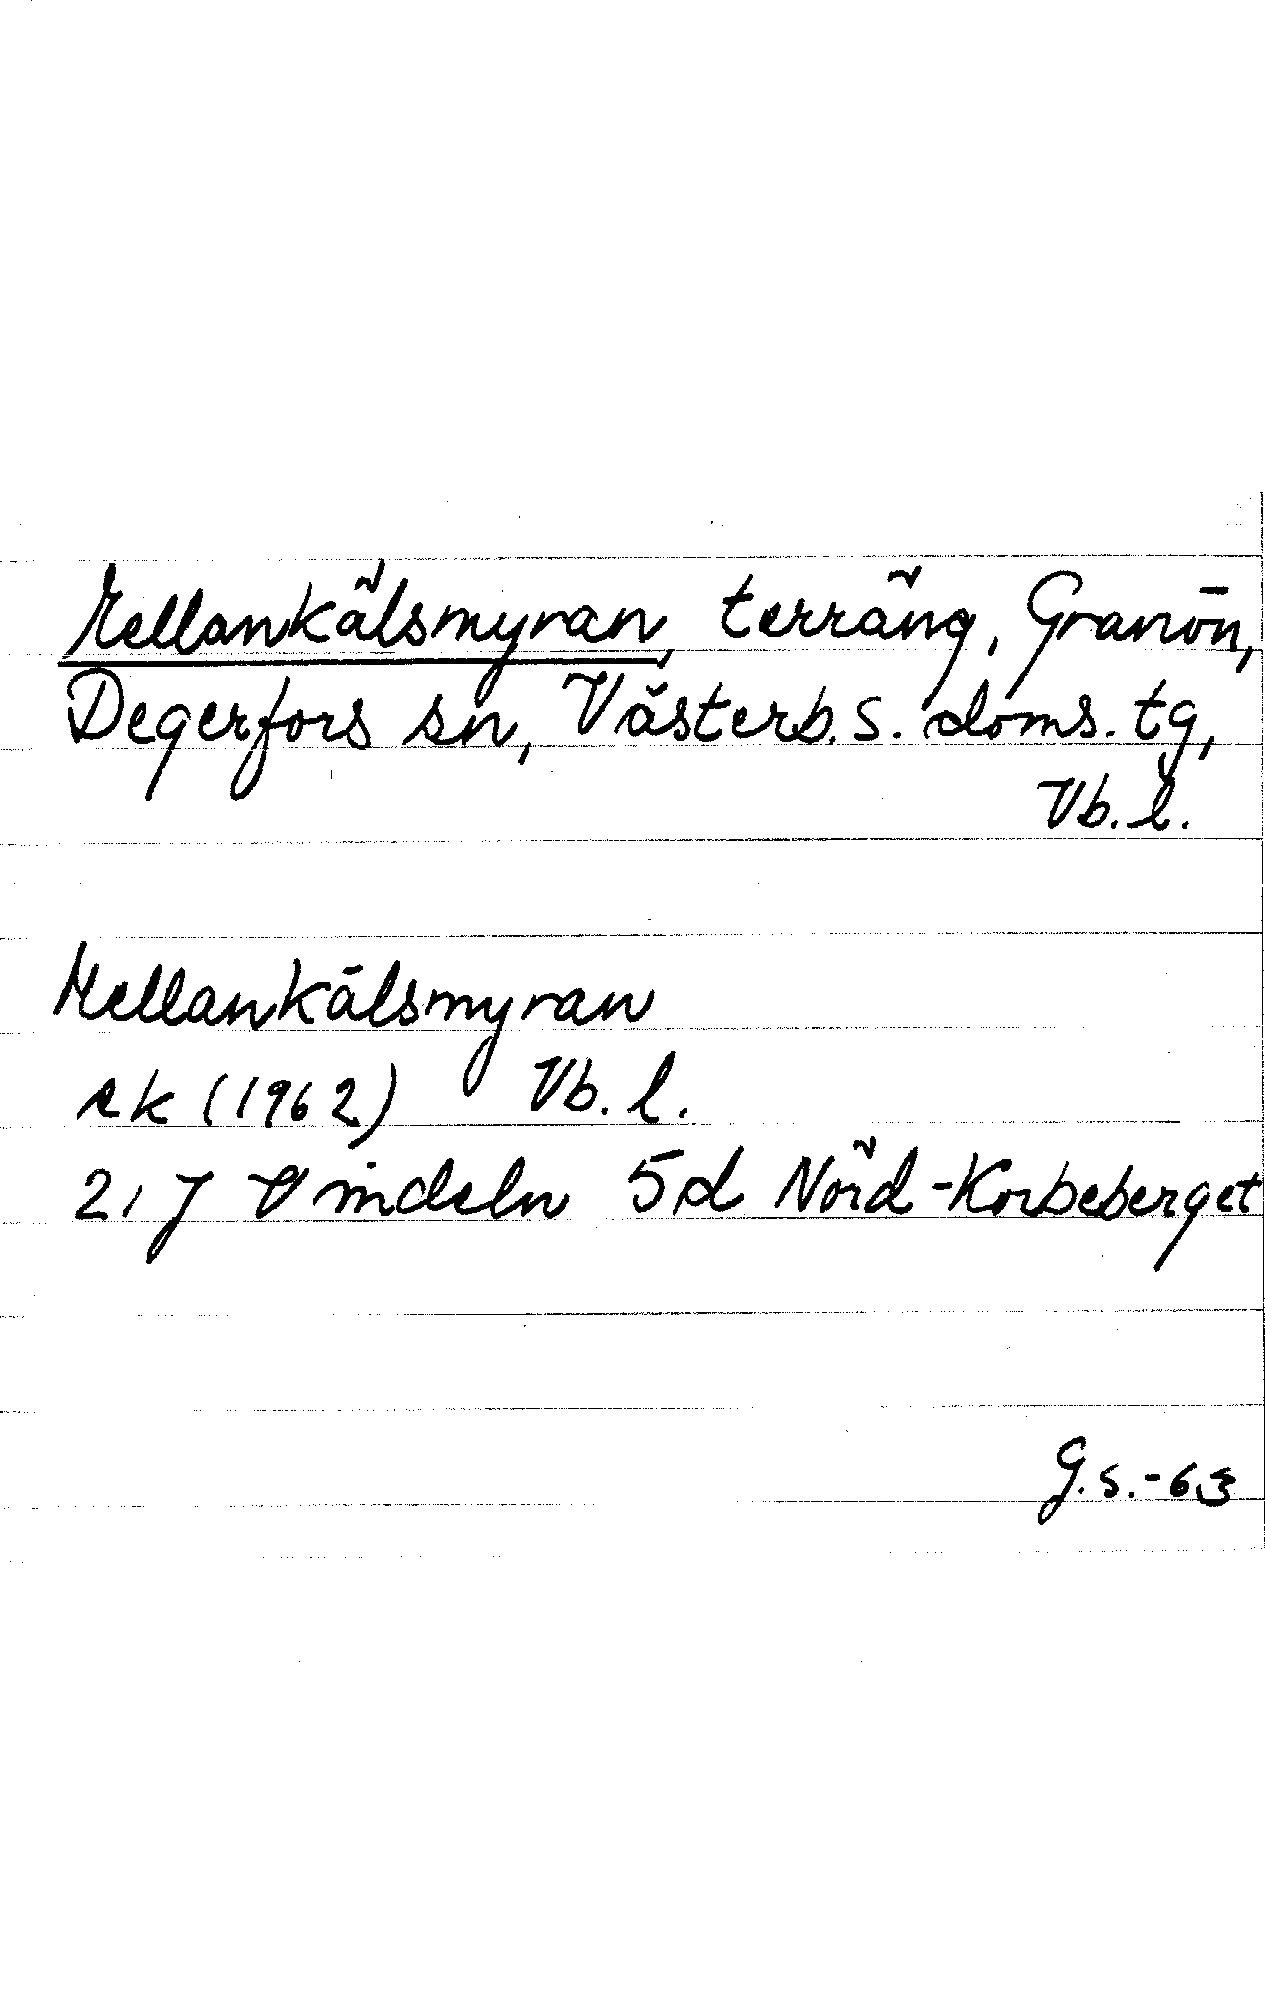 Mellankälsmyran, terräng, Granön,
Degerfors sn, Västerb. s. doms. tg,
Vb. l.
Mellankälsmyran
ek (1962) Vb. l.
21 J Vindeln 5d Nörd-Korbeberget
G.S.-63